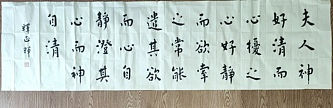 夫人神
好清而
心擾之
心好靜
而欲牽
之常能
遣其欲
而心自
靜澄其
心而神
自清